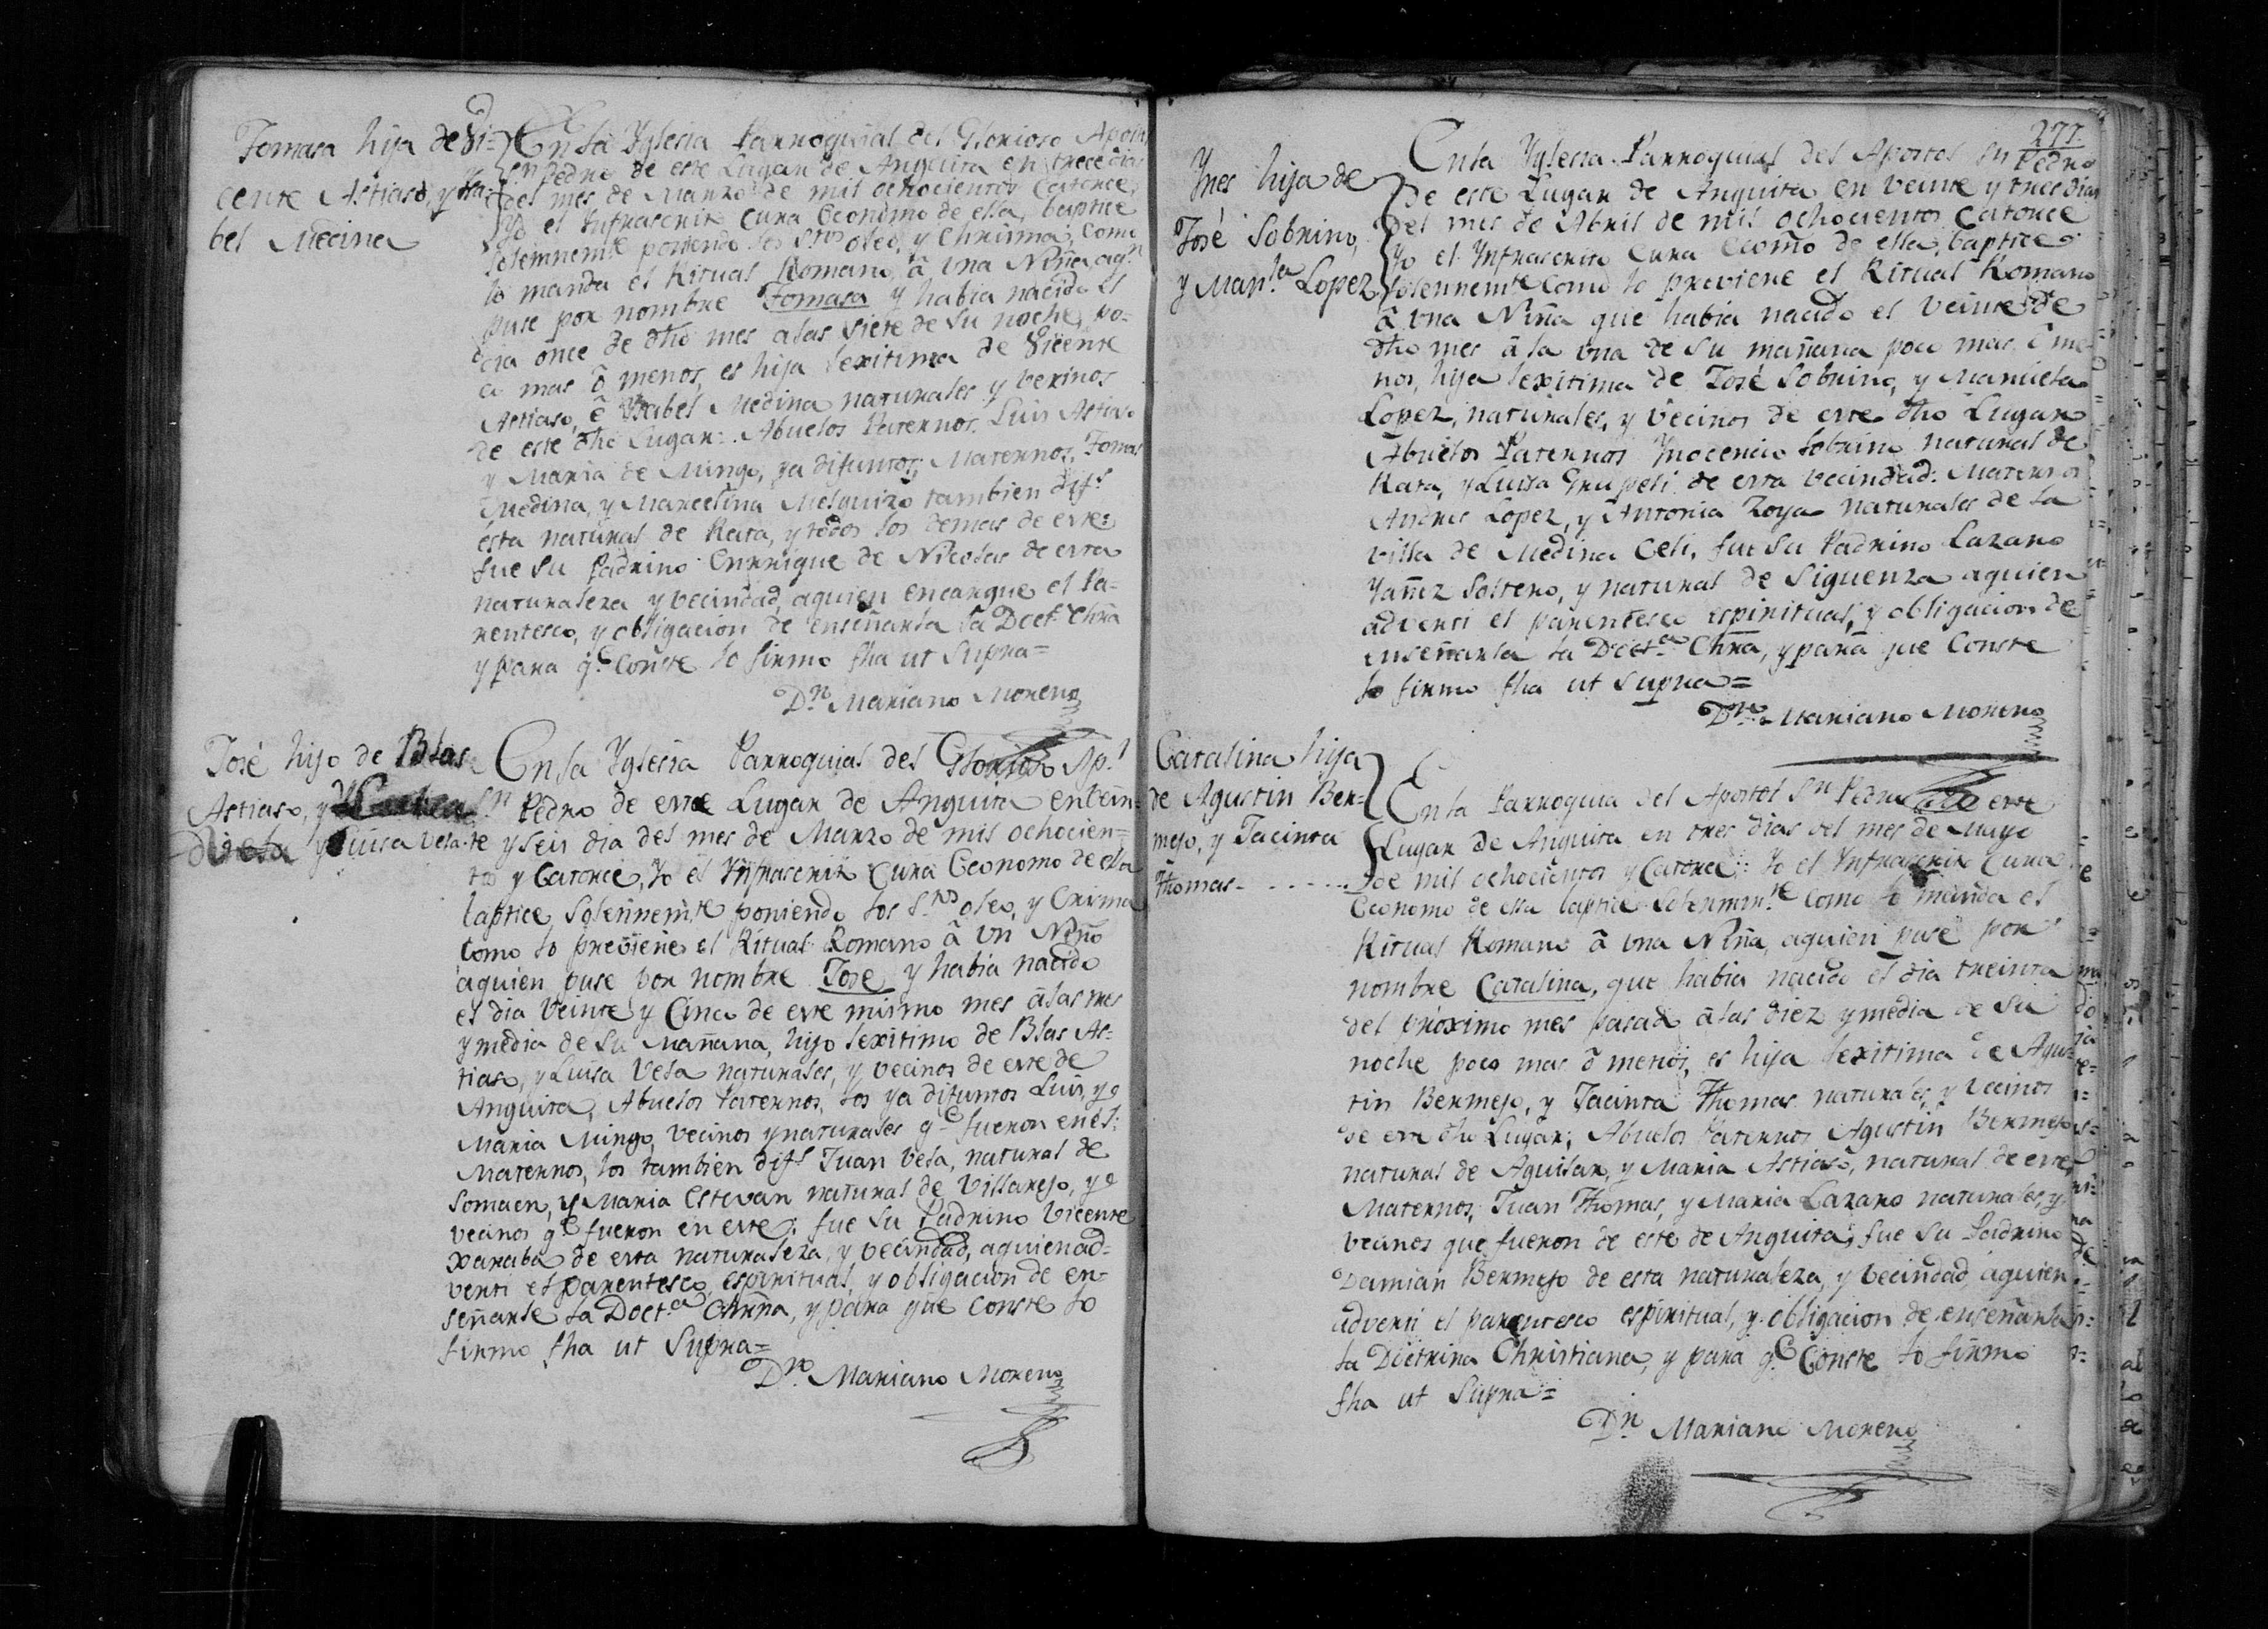 Tomasa hija de Vi=
cente Astiaso, y Ysa=
bel Medina
En la Yglesia Parroquial del Glorioso Apost.
Sn. Pedro de este Lugar de Anguita en trece dias
del mes de Marzo de mil ochocientos Catorce,
Yo el Infrascrito Cura Economo de ella, baptice
solemnemte. poniendo los Stos. oleo, y Chrisma, como
lo manda el Ritual Romano, â una Niña, aqn.
puse por nombre Tomasa y habia nacido el
dia once de dho mes alas siete de su noche, po-
co mas ô menos, es hija lexitima de Vicente
Astiaso, ê Ysabel Medina naturales y vexinos
de este dho Lugar: Abuelos Paternos, Luis Astiaso
y Maria de Mingo, ya difuntos; Maternos, Tomas
Medina, y Marcelina Melguizo tambien difs.
esta natural de Rata, y todos los demas de este:
fue su Padrino Enrrique de Nicolas de esta
naturaleza y vecindad, aquien encargue el Pa-
rentesco, y obligacion de enseñarla la Doct. Chna
y para q.e Conste lo firmo fha ut Supra=
Dn. Mariano Moreno
José hijo de Blas
Astiaso, y
y Luisa Vela.
En la Yglesia Parroquial del Glorioso Ap.l
Sn. Pedro de este Lugar de Anguita en vein-
te y seis dia del mes de Marzo de mil ochocien=
tos y Catorce, Yo el Ynfrascrito Cura Economo de ella
baptice solemnemte. poniendo los Stos. oleo, y Crisma
como lo previene el Ritual Romano â un Niño
aquien puse por nombre Jose, y habia nacido
el dia veinte y Cinco de este mismo mes âlas tres
y media de su mañana, hijo lexitimo de Blas As-
tiaso, y Luisa Vela naturales, y vecinos de este de
Anguita, Abuelos Paternos, los ya difuntos Luis, y
Maria Mingo, vecinos y naturales q.e fueron en el:
Maternos, los tambien difs. Juan Vela, natural de
Somaen, y Maria Estevan natural de Villarejo, y
vecinos q.e fueron en este: fue su Padrino Vicente
Xaraba de esta naturaleza, y vecindad, aquien ad=
verti el parentesco espiritual, y obligacion de en-
señarle la Doct.ca Chrña, y para que conste lo
firmo fha ut Supra=
Dn. Mariano Moreno
277.
Ynes hija de
José Sobrino,
y Man.la Lopez
En la Yglesia Parroquial del Apostol Sn Pedro
de este Lugar de Anguita en veinte y tres dias
del mes de Abril de mil ochocientos Catorce
Yo el Ynfrascrito Cura Ecomõ de ella, baptice
solennemte Como lo previene el Ritual Romano
â una Niña que habia nacido el veinte de
dho mes â la una de su mañana poco mas ô me-
nos, hija lexitima de José Sobrino, y Manuela
Lopez, naturales, y vecinos de este dho Lugar
Abuelos Paternos Ynocencio Sobrino natural de
Rata, y Luisa Grupeli de esta vecindad: Maternos
Andres Lopez, y Antonia Zoya naturales de la
villa de Medina Celi, fue su Padrino Lazaro
Yañez Soltero, y natural de Siguenza aquien
adverti el parentesco espiritual, y obligacion de
enseñarla la Doct.ca Chrña, y para que Conste
lo firmo fha ut Supra=
Dn. Mariano Moreno
Catalina hija
de Agustin Ber=
mejo, y Jacinta
Thomas - - - - - -
En la Parroquia del Apostol Sn Pedro de este
Lugar de Anguita en tres dias del mes de Mayo
de mil ochocientos y Catorce: Yo el Ynfrascrito Cura
Economo de ella baptice Solemnm.te como lo manda el
Ritual Romano â una Niña, aquien puse por
nombre Catalina, que habia nacido el dia treinta
del proximo mes pasado âlas diez y media de su
noche poco mas ô menos, es hija lexitima de Agus-
tin Bermejo, y Jacinta Thomas naturales, y vecinos
de este dho Lugar; Abuelos Paternos Agustin Bermejo
natural de Aguilar, y Maria Astiaso, natural de este,
Maternos, Juan Thomas, y Maria Lazaro naturales, y
vecinos que fueron de este de Anguita; fue su Padrino
Damian Bermejo de esta naturaleza, y vecindad, aquien
adverti el parentesco espiritual, y obligacion de enseñarla
la Doctrina Christiana, y para q.e Conste lo firmo
fha ut Supra=
Dn. Mariano Moreno